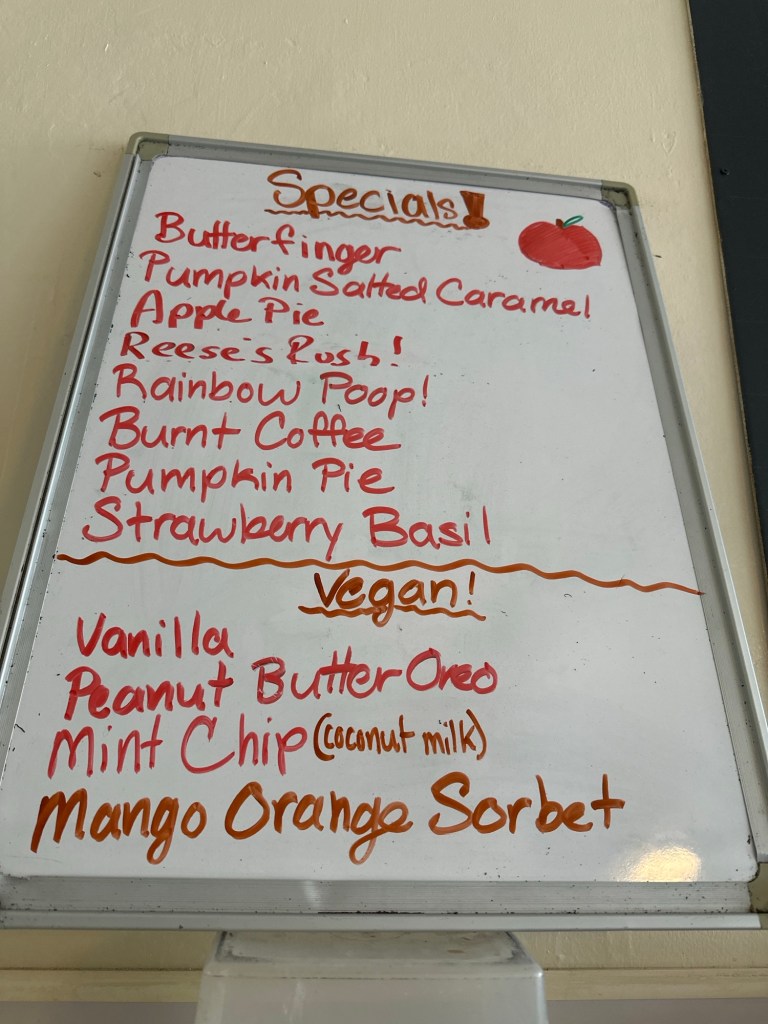 Specials!
Butterfinger
Pumpkin Salted Caramel
Apple Pie
Reese's Rush!
Rainbow Poop!
Burnt Coffee
Pumpkin Pie
Strawberry Basil
Vegan!
Vanilla
Peanut Butter Oreo
Mint Chip (coconut milk)
Mango Orange Sorbet